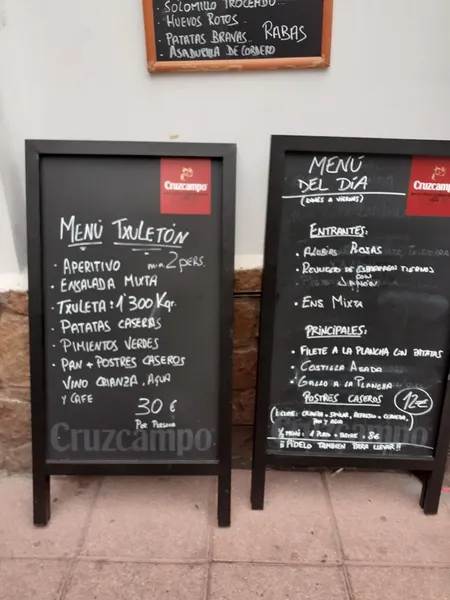 SOLOMILLO TROCEADO...
· HUEVOS ROTOS.
· PATATAS BRAVAS. RABAS
· ASADURILLA DE CORDERO
Cruzcampo
MENÚ TXULETÓN
min. 2 pers.
· APERITIVO
· ENSALADA MIXTA
· TXULETA: 1'300 Kgr.
· PATATAS CASERAS
· PIMIENTOS VERDES
· PAN + POSTRES CASEROS
VINO CRIANZA, AGUA
Y CAFE
30 €
POR PERSONA
Cruzcampo
Cruzcampo
MENÚ
DEL DÍA
(LUNES A VIERNES)
ENTRANTES:
· ALUBIAS ROJAS
· REVUELTO DE TIERNOS
CON
JAMÓN
· ENS MIXTA
PRINCIPALES:
· FILETE A LA PLANCHA CON PATATAS
· COSTILLA ASADA
· GALLO A LA PLANCHA
POSTRES CASEROS
12€
PAN Y AGUA
½ MENÚ: 1 PLATO + POSTRE = 8€
¡¡ PÍDELO TAMBIEN PARA LLEVAR!!